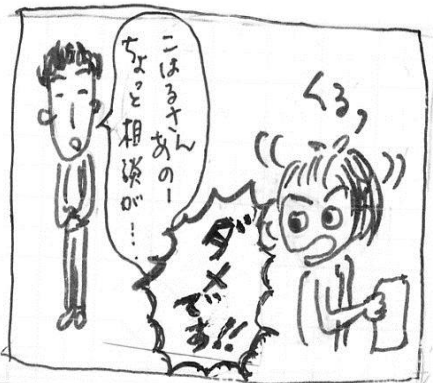 こはるさん
あのー
ちょっと相談が…
くるっ
ダメ
です!!